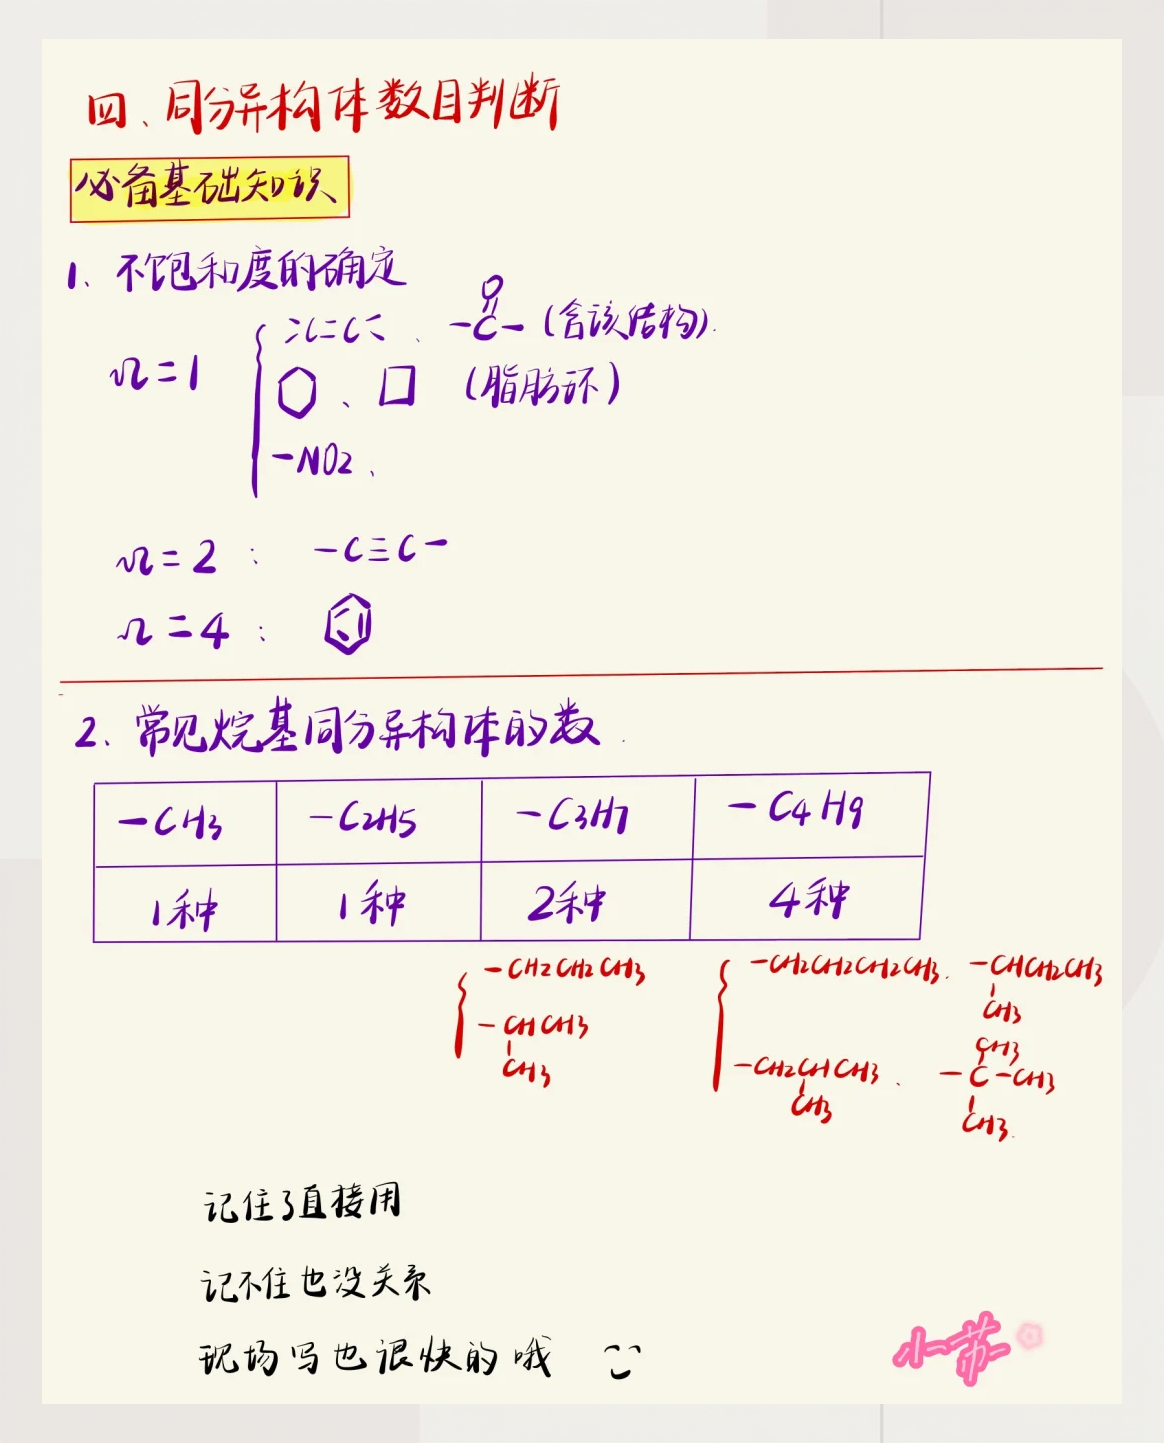 四、同分异构体数目判断
必备基础知识
1、不饱和度的确定
Ω=1
>C=C< 、 -C- (含该结构).
O
、 (脂肪环)
-NO2、
Ω=2 : -C≡C-
Ω=4 :
2、常见烷基同分异构体的数.
-CH3 -C2H5 -C3H7 -C4H9
1种 1种 2种 4种
-CH2CH2CH3
-CHCH3
CH3
-CH2CH2CH2CH3. -CHCH2CH3
CH3
-CH2CHCH3 、
CH3
CH3
-C-CH3
CH3.
记住了直接用
记不住也没关系
现场写也很快的哦
小苏